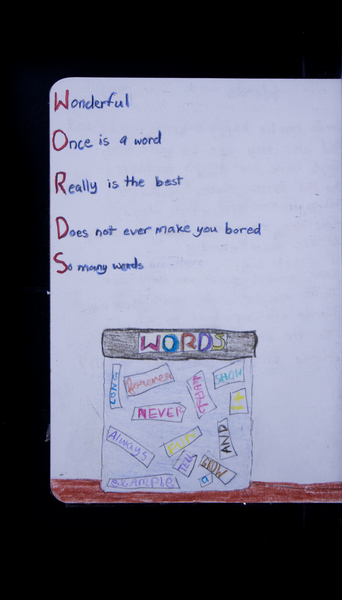 Wonderful
Once is a word
Really is the best
Does not ever make you bored
So many words
WORDS
LONG
SHOW
IT
NEVER
AND
Always
FUN
GLOW
a
EXAMPLE